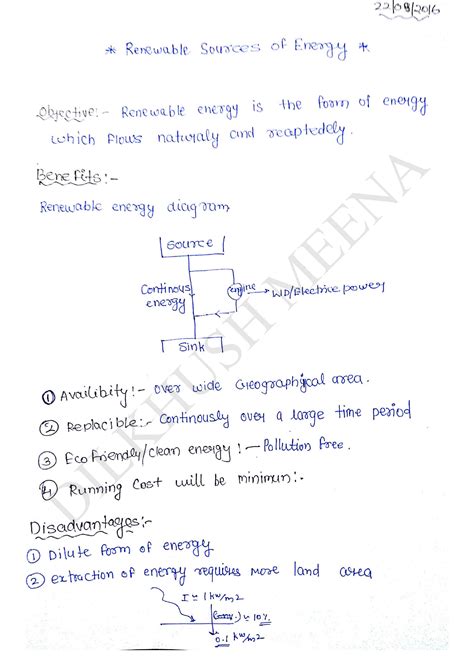 22/08/2016
* Renewable Sources of Energy *
Objective:- Renewable energy is the form of energy
which flows naturaly and reaptedely.
Benefits:-
Renewable energy diagram
Source
Continous
energy
engine
WD/Electrice power
Sink
① Availibity:- over wide Geographical area.
② Replacible:- Continously over a large time period
③ Ecofriendly/clean energy:- Pollution free.
④ Running Cost will be minimum:-
Disadvantages:-
① Dilute form of energy
② extraction of energy requires more land area
I ≃ 1 kw/m2
(conv.) ≃ 10%
0.1 kw/m2
DILKHUSH MEENA